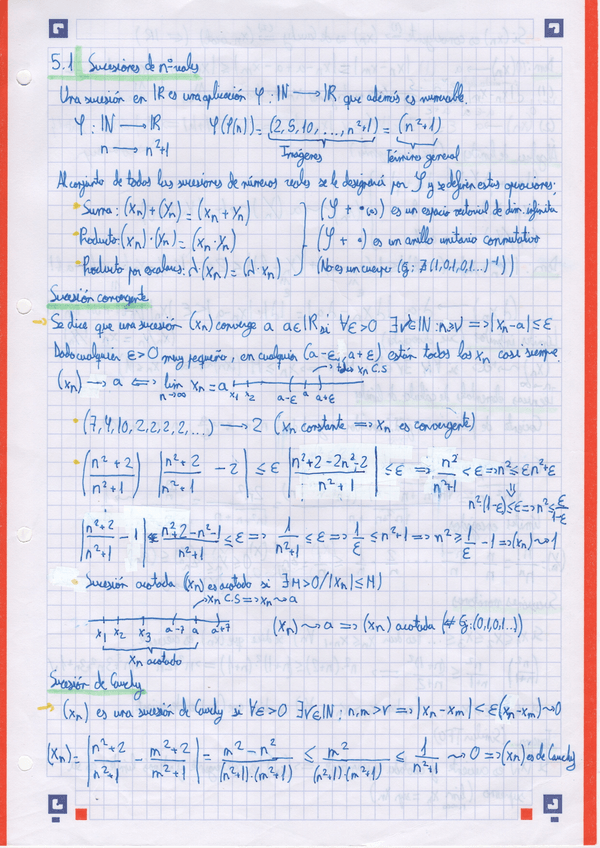 5.1 Sucesiones de nºreales
Una sucesión en ℝ es una aplicación φ : ℕ ⟶ ℝ que además es numerable.
φ : ℕ ⟶ ℝ φ(φ(n)) = (2, 5, 10, ..., n²+1) = (n²+1)
n ⟶ n²+1 Imágenes Término general
Al conjunto de todas las sucesiones de números reales se le designará por 𝒮 y se definen estas operaciones:
Suma: (xn)+(yn) = (xn + yn) (𝒮 + ·(ℝ)) es un espacio vectorial de dim. infinita
Producto: (xn)·(yn) = (xn · yn) (𝒮 + ·) es un anillo unitario conmutativo
Producto por escalares: λ·(xn) = (λ·xn) (No es un cuerpo (Ej: ∄ (1,0,1,0,1...)⁻¹))
Sucesión convergente
Se dice que una sucesión (xn) converge a a∈ℝ si ∀ε>0 ∃ν∈ℕ : n>ν ⟹ |xn-a| ≤ ε
Dado cualquier ε>0 muy pequeño, en cualquier (a-ε, a+ε) están todos los xn casi siempre.
todos xn C.S
(xn) ⟶ a ⟺ lim n→∞ xn = a x1 x2 a-ε a a+ε
(7, 4, 10, 2, 2, 2, 2, ...) ⟶ 2 (xn constante ⟹ xn es convergente)
((n²+2)/(n²+1)) |(n²+2)/(n²+1) - 2| ≤ ε |(n²+2-2n²-2)/(n²+1)| ≤ ε ⟹ n²/(n²+1) < ε ⟹ n² ≤ εn²+ε
⇓
n²(1-ε) ≤ ε ⟹ n² ≤ ε/(1-ε)
|(n²+2)/(n²+1) - 1| = (n²+2-n²-1)/(n²+1) ≤ ε ⟹ 1/(n²+1) ≤ ε ⟹ 1/ε ≤ n²+1 ⟹ n² ≥ 1/ε - 1 ⟹ (xn) ⇝ 1
Sucesión acotada (xn) es acotado si ∃M>0 / |xn| ≤ M)
xn C.S ⟹ xn ⇝ a
x1 x2 x3 a-7 a a+7 (xn) ⇝ a ⟹ (xn) acotada (⇍ Ej: (0,1,0,1...))
xn acotado
Sucesión de Cauchy
(xn) es una sucesión de Cauchy si ∀ε>0 ∃ν∈ℕ : n,m>ν ⟹ |xn-xm| < ε (xn-xm) ⇝ 0
(xn) = |(n²+2)/(n²+1) - (m²+2)/(m²+1)| = (m²-n²)/((n²+1)·(m²+1)) ≤ m²/((n²+1)·(m²+1)) ≤ 1/(n²+1) ⇝ 0 ⟹ (xn) es de Cauchy